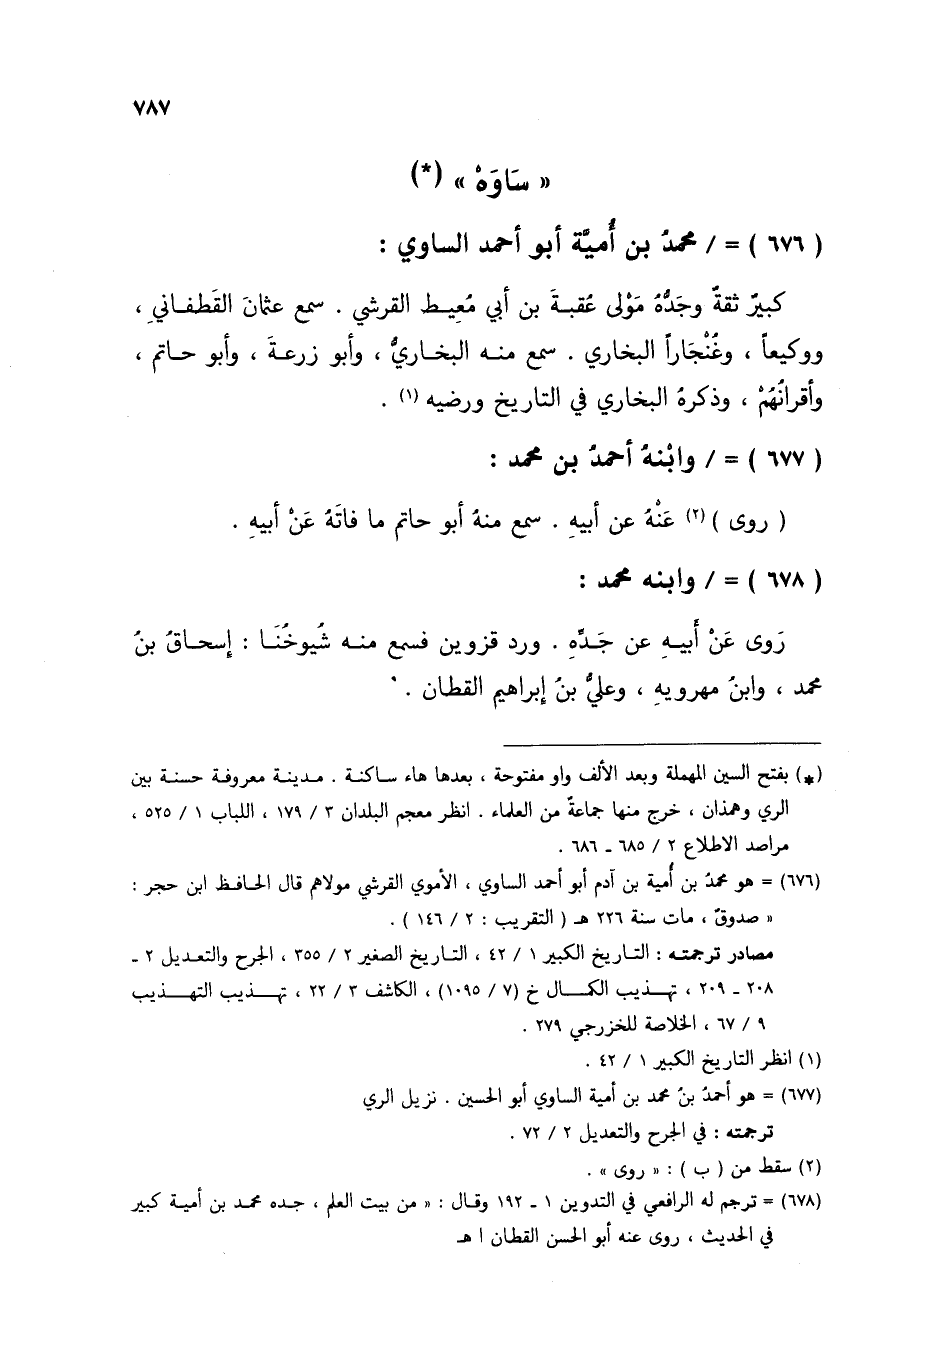 ٧٨٧
« سَاوَهْ » (*)
( ٦٧٦ ) = / محمدُ بن أُميَّة أبو أحمد الساوي :
كبيرٌ ثقةٌ وجَدُّهُ مَوْلى عُقبةَ بن أبي مُعيط القرشي . سمع عثمانَ القَطفاني ،
ووكيعاً ، وغُنْجَاراً البخاري . سمع منه البخاريُّ ، وأبو زرعة ، وأبو حاتم ،
وأقرانُهُمْ ، وذكرهُ البخاري في التاريخ ورضيه (١) .
( ٦٧٧ ) = / وابْنهُ أحمدُ بن محمد :
( روى ) (٢) عَنْهُ عن أبيهِ . سمع منهُ أبو حاتم ما فاتَهُ عَنْ أبيهِ .
( ٦٧٨ ) = / وابنه محمد :
رَوى عَنْ أَبيهِ عن جَدِّهِ . ورد قزوين فسمع منه شُيوخُنَا : إسحاقُ بنُ
محمد ، وابنُ مهرويهِ ، وعليُّ بنُ إبراهيم القطان .
(*) بفتح السين المهملة وبعد الألف واو مفتوحة ، بعدها هاء ساكنة . مدينة معروفة حسنة بين
الري وهمذان ، خرج منها جماعةٌ من العلماء . انظر معجم البلدان ٣ / ١٧٩ ، اللباب ١ / ٥٢٥ ،
مراصد الاطلاع ٢ / ٦٨٥ ـ ٦٨٦ .
(٦٧٦) = هو محمدُ بن أُمية بن آدم أبو أحمد الساوي ، الأموي القرشي مولاهم قال الحافظ ابن حجر :
« صدوقٌ ، مات سنة ٢٢٦ هـ ( التقريب : ٢ / ١٤٦ ) .
مصادر ترجمته : التاريخ الكبير ١ / ٤٢ ، التاريخ الصغير ٢ / ٣٥٥ ، الجرح والتعديل ٢ ـ
٢٠٨ ـ ٢٠٩ ، تهذيب الكمال خ (٧ / ١٠٩٥) ، الكاشف ٣ / ٢٢ ، تهذيب التهذيب
٩ / ٦٧ ، الخلاصة للخزرجي ٢٧٩ .
(١) انظر التاريخ الكبير ١ / ٤٢ .
(٦٧٧) = هو أحمدُ بنُ محمد بن أمية الساوي أبو الحسين . نزيل الري
ترجمته : في الجرح والتعديل ٢ / ٧٢ .
(٢) سقط من ( ب ) : « روى » .
(٦٧٨) = ترجم له الرافعي في التدوين ١ ـ ١٩٢ وقال : « من بيت العلم ، جده محمد بن أمية كبير
في الحديث ، روى عنه أبو الحسن القطان ا هـ